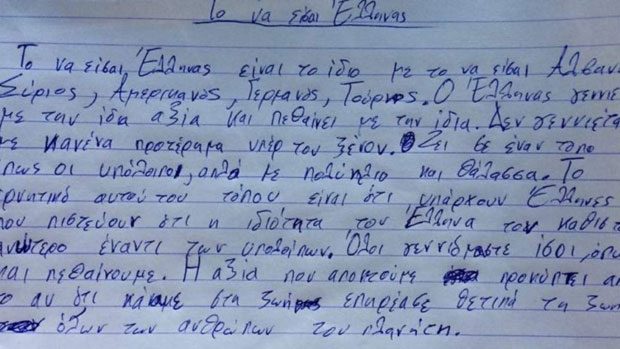 Το να είσαι Έλληνας
Το να είσαι Έλληνας είναι το ίδιο με το να είσαι Αλβανό
Σύριος, Αμερικανός, Γερμανός, Τούρκος. Ο Έλληνας γεννιέ
με την ίδια αξία και πεθαίνει με την ίδια. Δεν γεννιέτα
με κανένα προτέραμα υπέρ του ξένου. Ζει σε έναν τόπο
όπως οι υπόλοιποι, απλά με πολύ ήλιο και θάλασσα. Το
ερνητικό αυτού του τόπου είναι ότι υπάρχουν Έλληνες
που πιστεύουν ότι η ιδιότητα του Έλληνα τον καθιστ
ανώτερο έναντι των υπολοίπων. Όλοι γεννιόμαστε ίσοι, όπω
και πεθαίνουμε. Η αξία που αποκτούμε προκύπτει απ
το αν ότι κάναμε στη ζωή επηρέασε θετικά τη ζωή
όλων των ανθρώπων του πλανήτη.